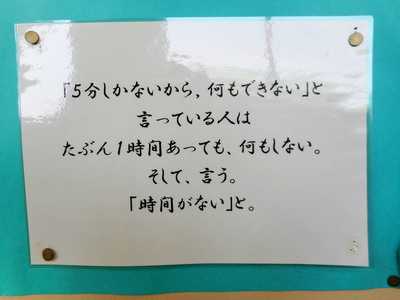 「5分しかないから、何もできない」と
言っている人は
たぶん1時間あっても、何もしない。
そして、言う。
「時間がない」と。